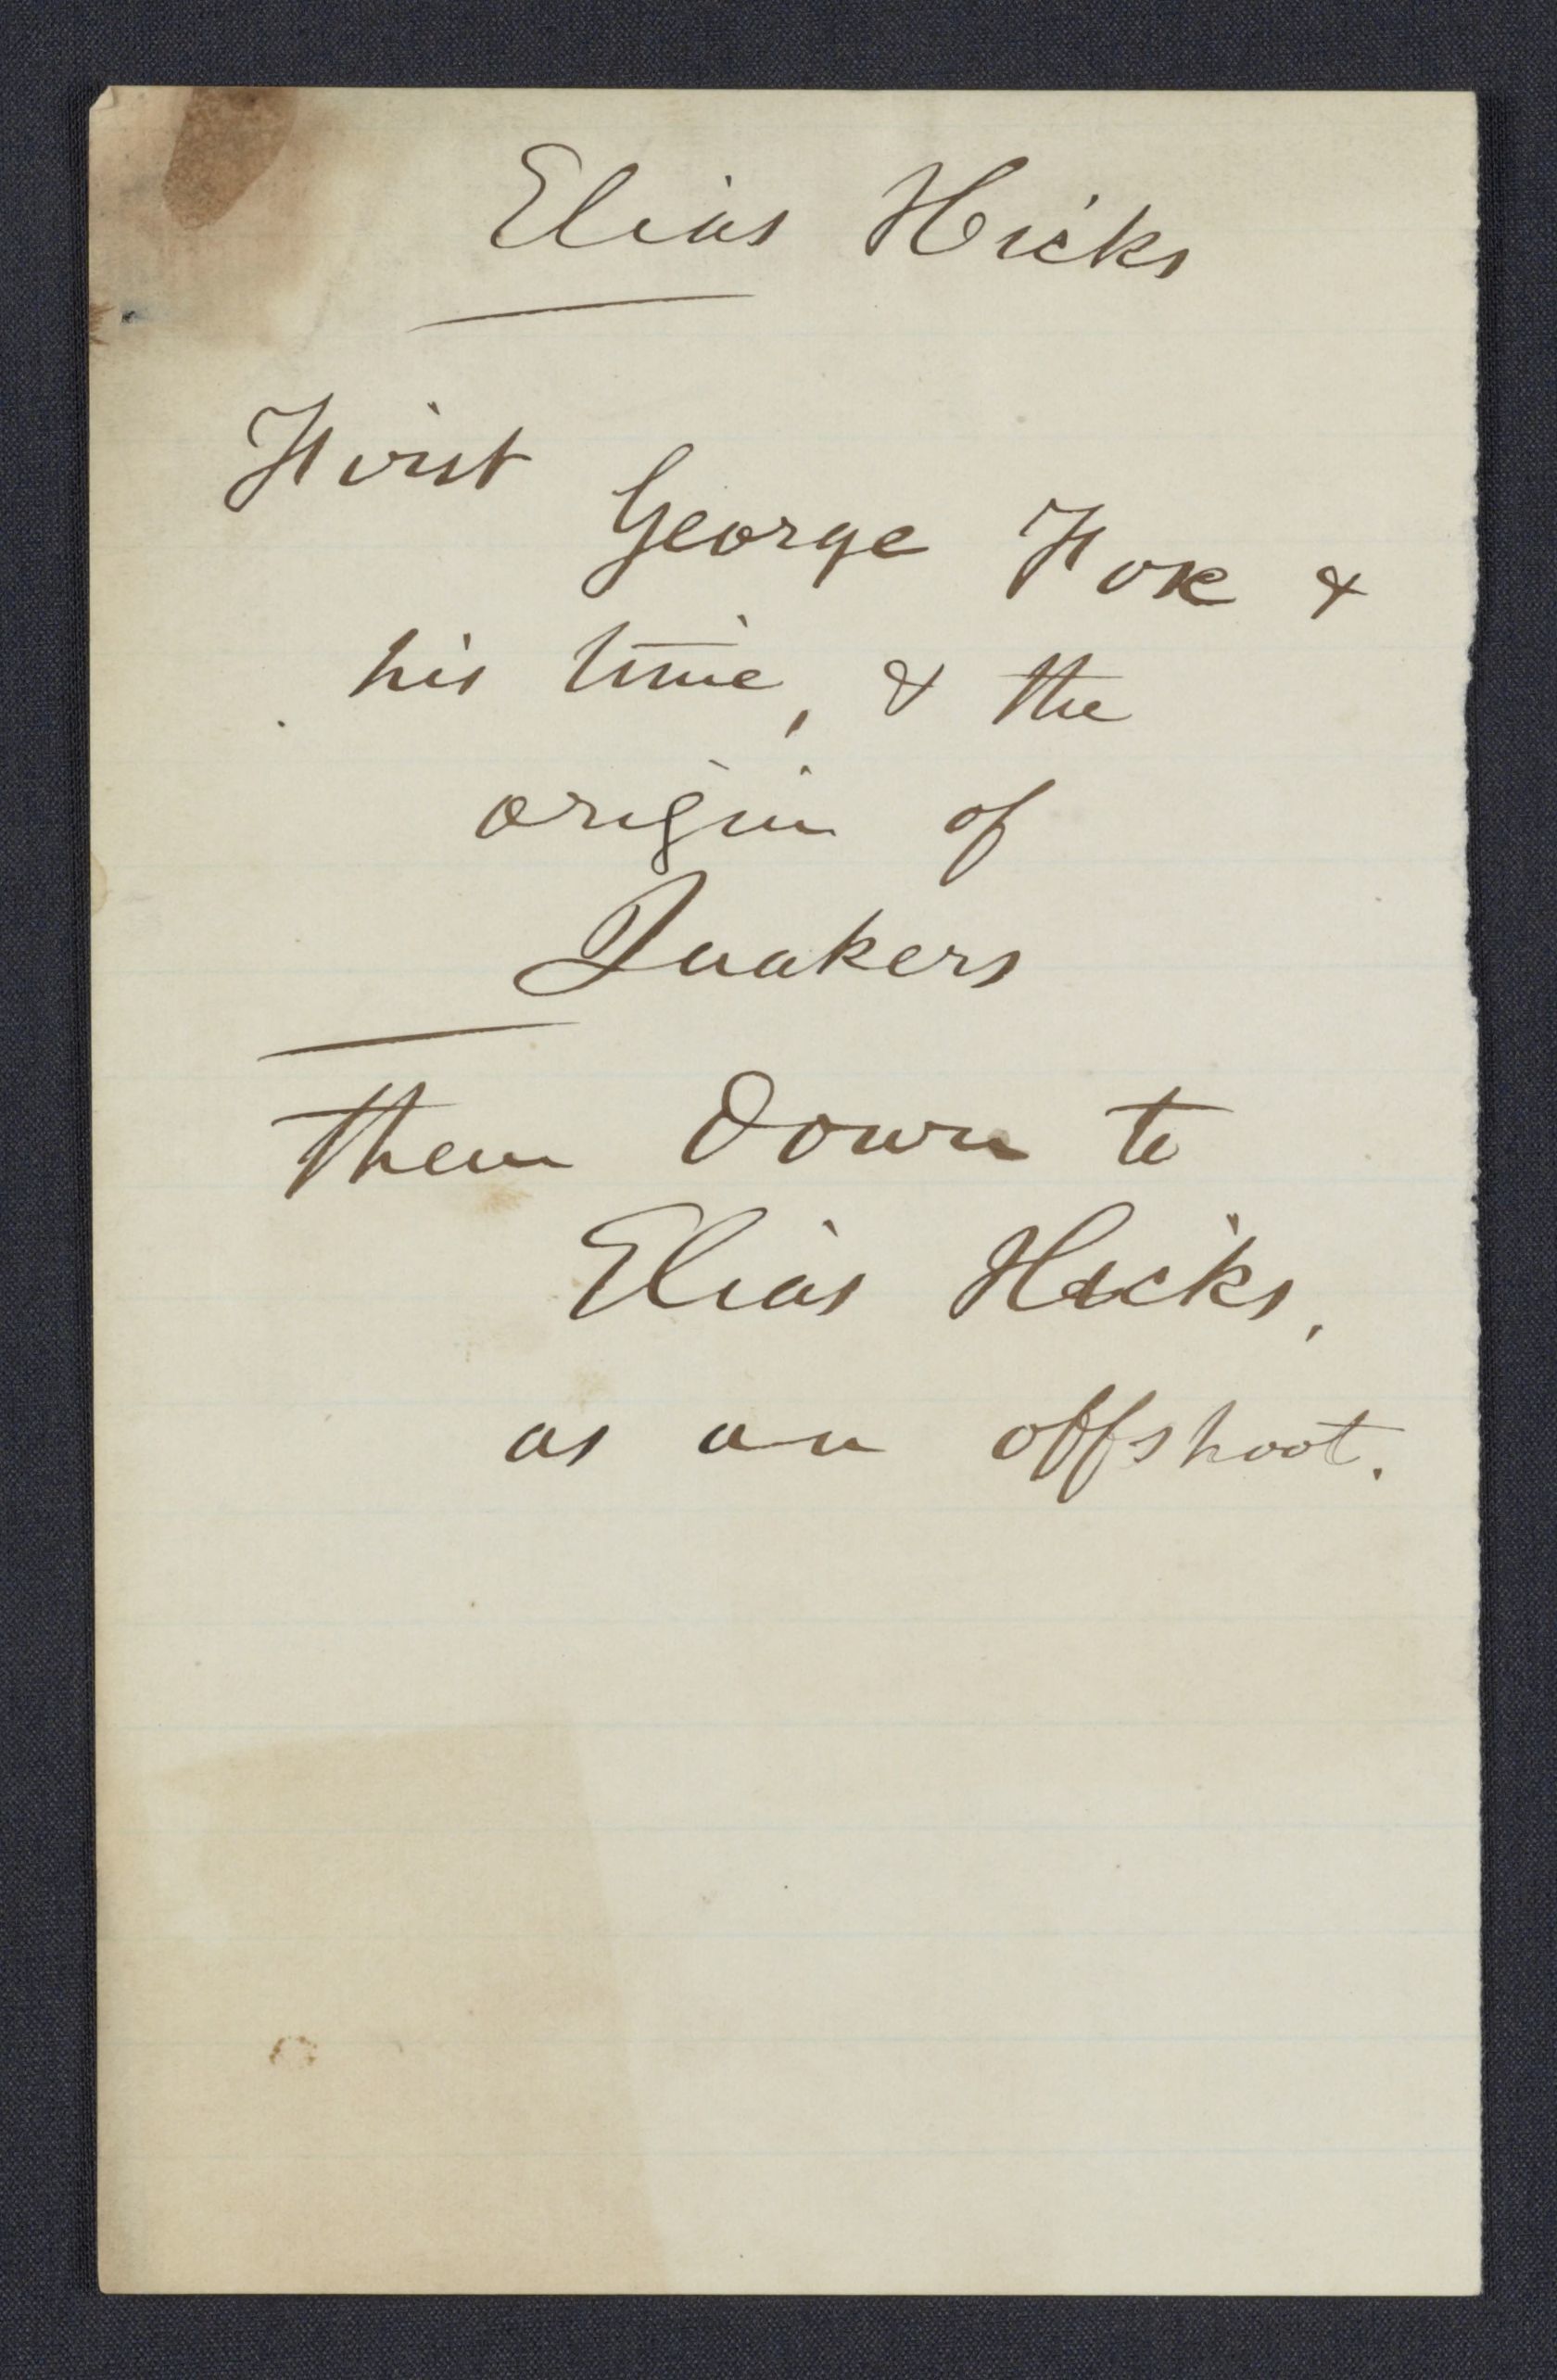 Elias Hicks
First
George Fox &
his time, & the
origin of
Quakers
then down to
Elias Hicks,
as an offshoot.